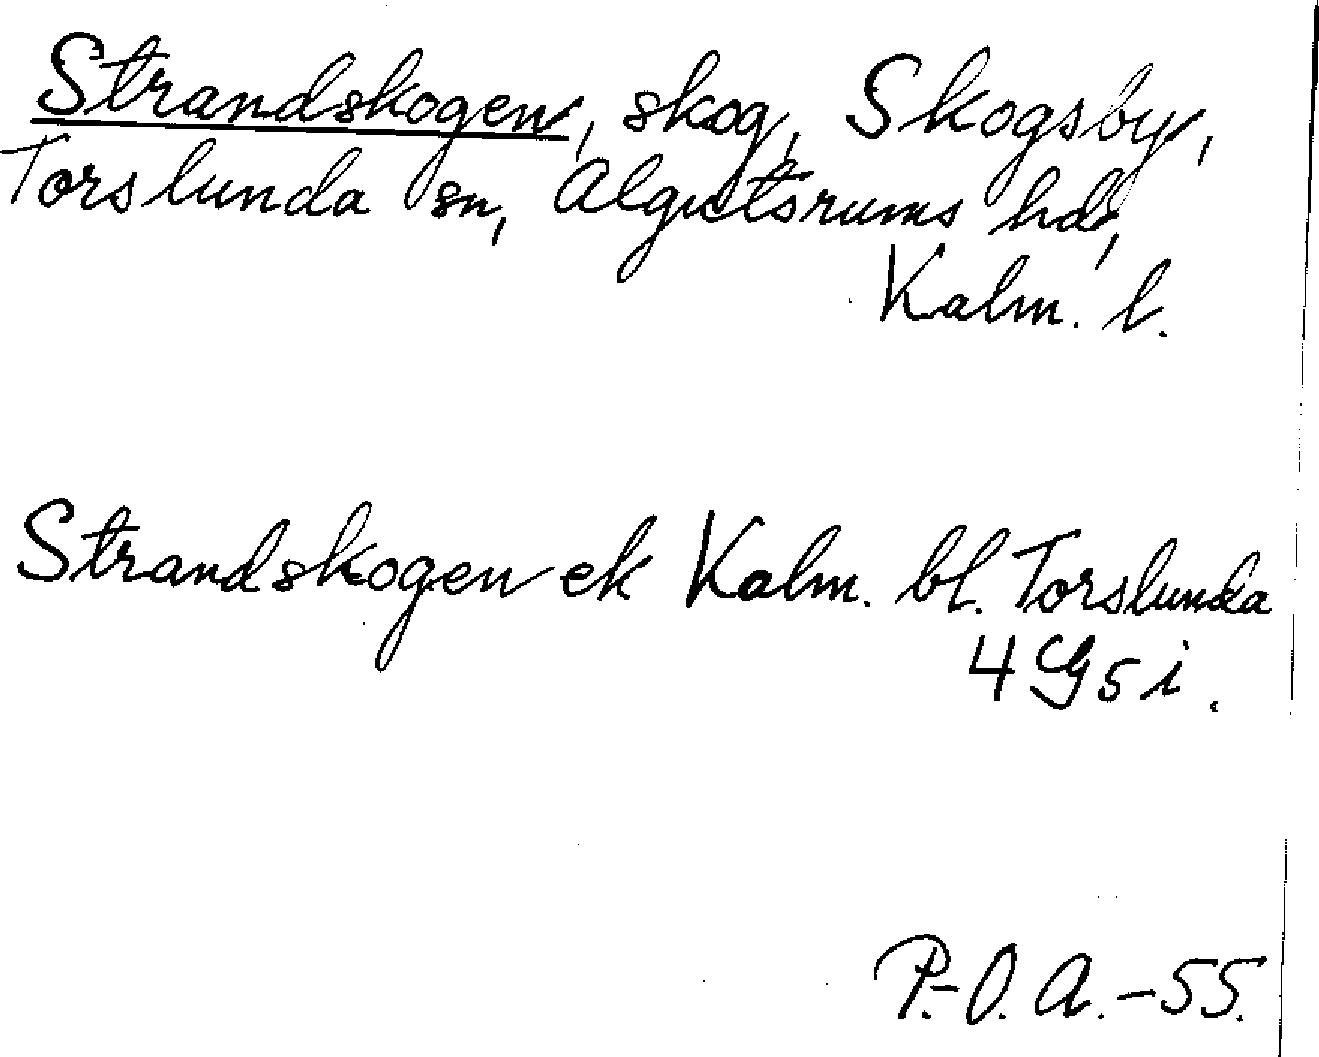 Strandskogen, skog, Skogsby,
Torslunda sn, Algutsrums hd,
Kalm. l.
Strandskogen ek Kalm. bl. Torslunda
4G5i.
P.-O. A. -55.